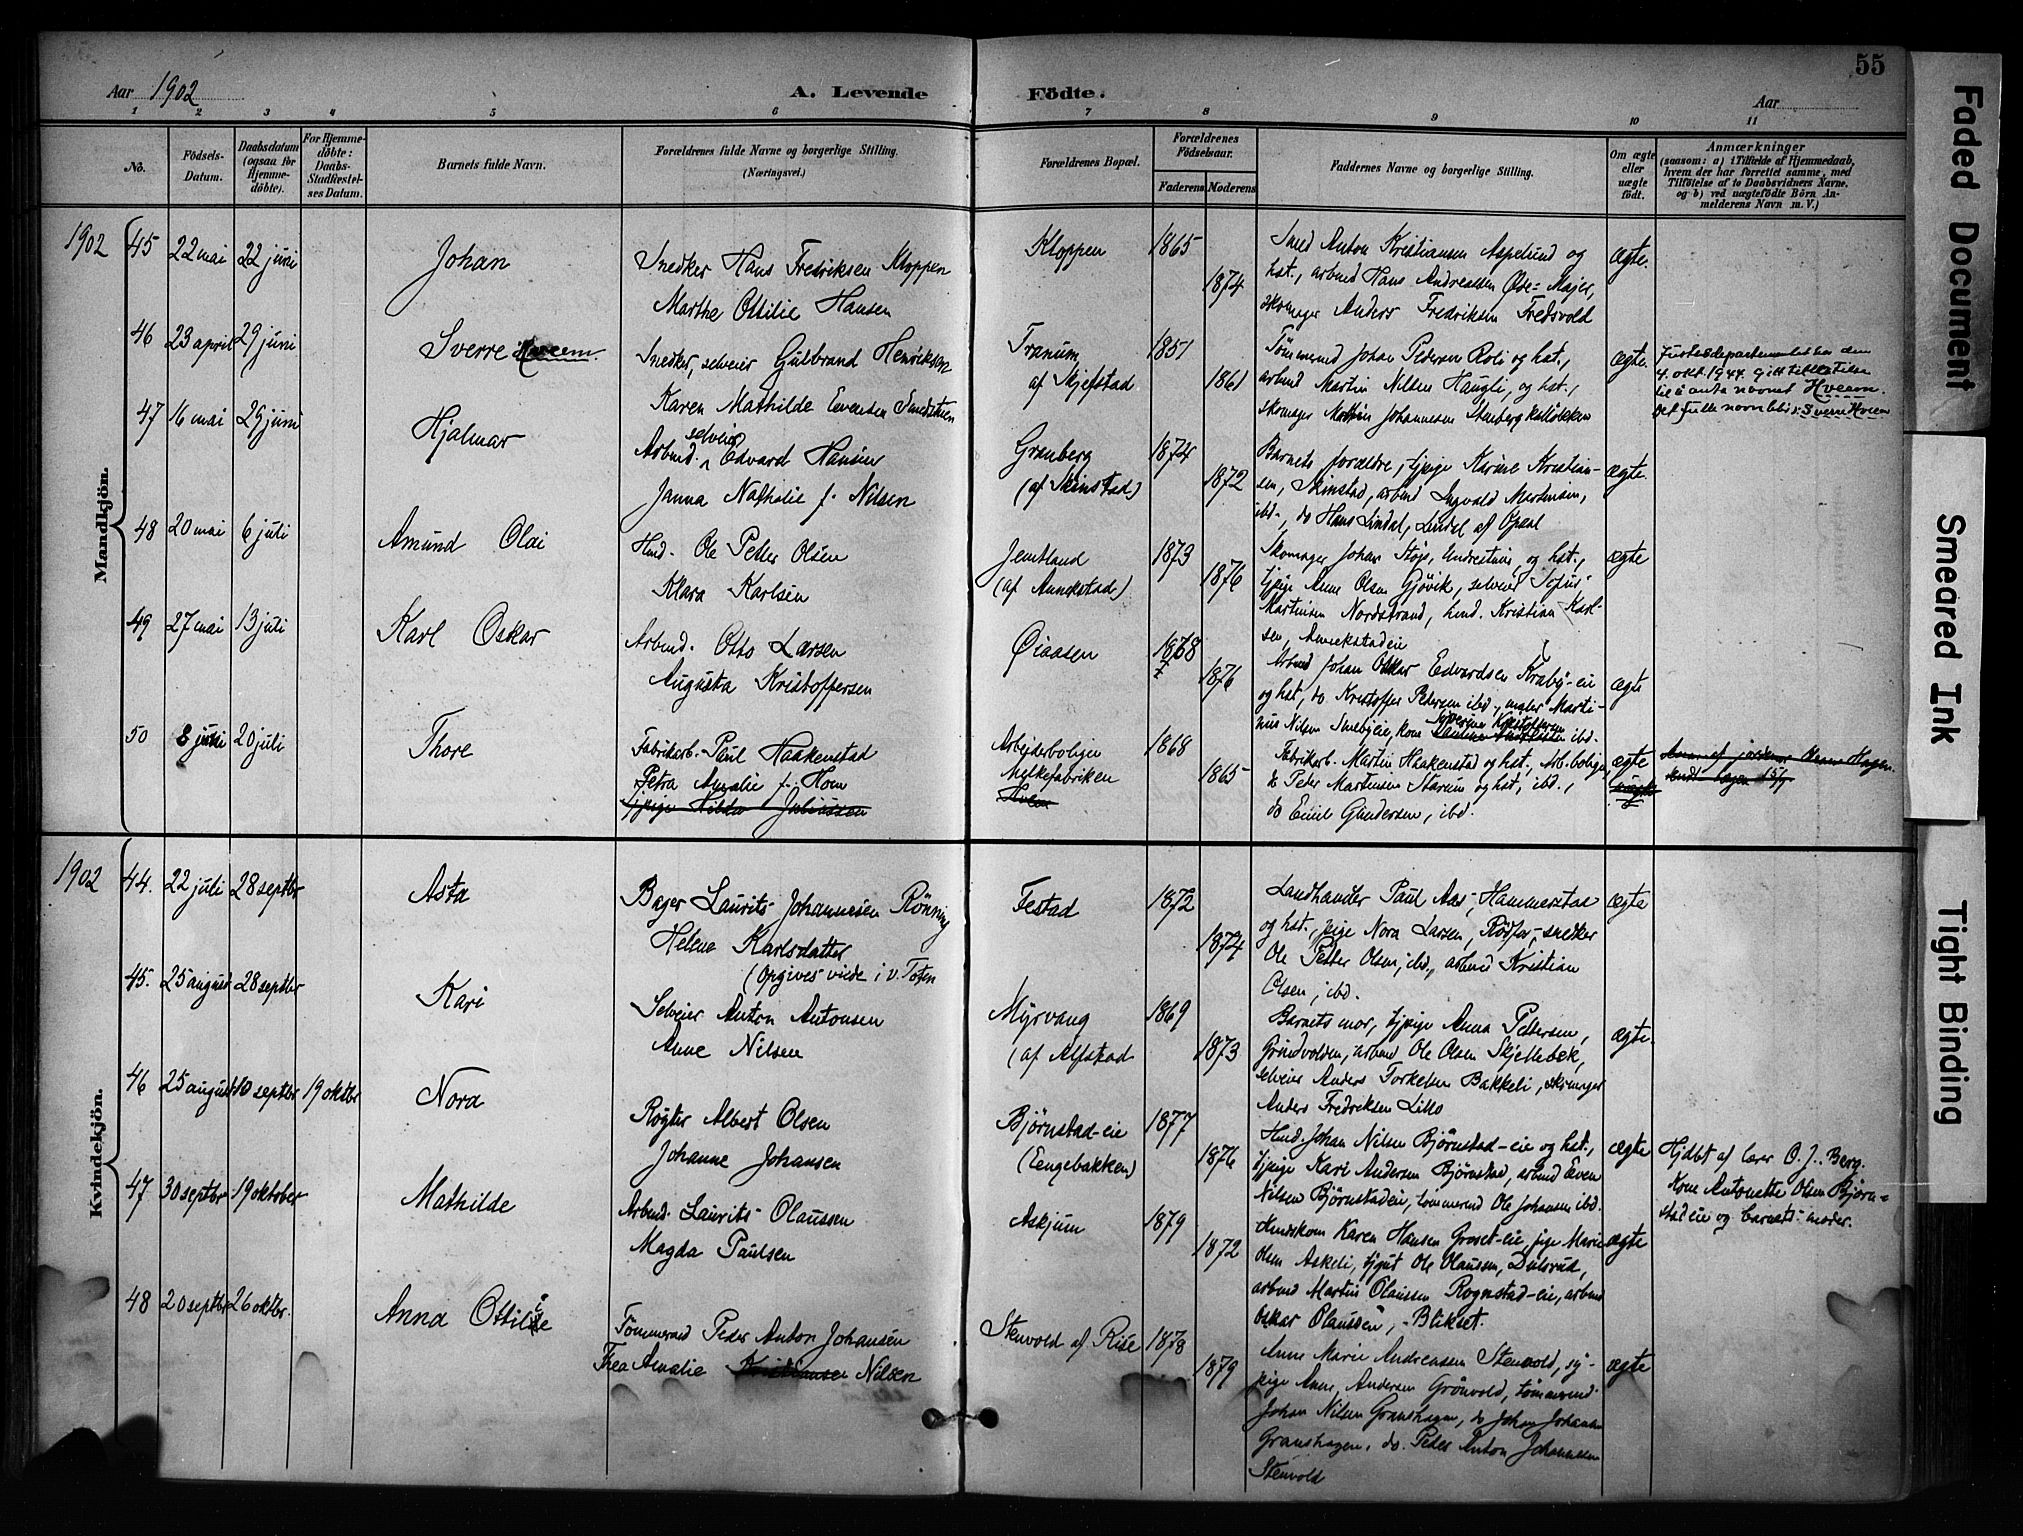 55
Aar 1902
A. Levende Födte.
Aar
1 2 3 4 5 6 7 8 9 10 11
No.
Födsels-Datum.
Daabsdatum (ogsaa for Hjemme-döbte).
For Hjemme-döbte: Daabs-Stadfæstel-ses Datum.
Barnets fulde Navn.
Forældrenes fulde Navne og borgerlige Stilling. (Næringsvei.)
Forældrenes Bopæl.
Forældrenes Födselsaar.
Faderens Moderens
Faddernes Navne og borgerlige Stilling.
Om ægte eller uægte födt.
Anmærkninger
(saasom: a) i Tilfælde af Hjemmedaab,
hvem der har forrettet samme, med
Tilföielse af to Daabsvidners Navne.
og b) ved uægtefödte Börn An-
melderens Navn m. V.)
Mandkjön.
1902 45 22 mai 22 juni Johan
Snedker Hans Fredriksen Kloppen
Marthe Ottilie Hansen
Kloppen 1865 1874
Smed Anton Kristiansen Aspelund og
hst., arbmd Hans Andreassen Øde-Majer,
skomager Anders Fredriksen Fredsvold
ægte.
46 23 april 29 juni Sverre Hveem.
Snedker, selveier Gulbrand Henriksen
Karen Mathilde Evensen
Tranum af Skjefstad 1851 1861
Tømmermd Johan Pedersen Roli og hst.,
arbmd Martin Nilsen Haugli, og hst.,
skomager Martin Johannesen
ægte.
Justisdepartementet har den
4. okt. 1944 gitt tillatelse
til å anta navnet Hveem.
Det fulle navn blir: Sverre Hveem
47 16 mai 29 juni Hjalmar
Arbmd. selveier Edvard Hansen
Janna Nathalie f. Nilsen
Granberg (af Skinstad) 1874 1872
Barnets forældre, tjpige Karine Kristian-
sen, Skinstad, arbmd Ingvald Martinsen,
ibd., do Hans Lindal, Lindal af Opsal
ægte.
48 20 mai 6 juli Amund Olai
Hmd. Ole Petter Olsen
Klara Karlsen
Jemtland (af Annekstad) 1873 1876
Skomager Johan Støjs, og hst.,
tjpige Anne Olsen Gjøvik, selveier Sofus
Martinsen Nordstrand, hmd. Kristian Karl-
sen, Annekstadeie
ægte
49 27 mai 13 juli Karl Oskar
Arbmd. Otto Larsen
Augusta Kristoffersen
Øiaasen 1868 1876
Arbmd Johan Oskar Edvardsen Kraby-eie
og hst, do Kristoffer Pedersen ibd., maler Marti-
nus Nilsen Smebyeie, kone Severine Kristoffersen ibd.
ægte
50 8 juni 20 juli Thore
Fabrikarb. Paul Haakenstad
Petra Amalie f. Hom
tjpige Hilda Juliussen
Arbejderboligen Melkefabriken
1868 1865
Fabrikarb. Martin Haakenstad og hst, Arb.boligen,
do Peter Martinsen Starum og hst, ibd.,
do Emil Gundersen, ibd.
ægte
uægte
Kvindekjön.
1902 44. 22 juli 28 septbr Asta
Bager Laurits Johannesen Rönning
Helene Karlsdatter
(opgives viede i V. Toten
Festad 1872 1874
Landhandler Paul Aas, Hammerstad
og hst., pige Nora Larsen, Rødfos, snedker
Ole Petter Olsen, ibd., arbmd Kristian
Olsen, ibd.
ægte
45. 25 august 28 septbr Kari
Selveier Anton Antonsen
Anne Nilsen
Myrvang (af Alfstad 1869 1873
Barnets mor, tjpige Anna Pettersen,
Grindvolden, arbmd Ole Olsen Skjellebek,
selveier Anders Torkelsen Bakkeli, skomager
Anders Fredriksen Lillo
ægte.
46 25 august 10 septbr 19 oktbr Nora
Røgter Albert Olsen
Johanne Johansen
Bjørnstad-eie (Eengebakken) 1877 1876
Hmd. Johan Nilsen Bjørnstad-eie og hst.,
tjpige Kari Andersen Bjørnstad, arbmd Even
Nilsen Bjørnstadeie, tømmermd Ole Johansen ibd.
ægte
Hjdbt af lærer O. J. Berg.
Kone Antonette Olsen Bjørn-
stad eie og barnets moder.
47 30 septbr 19 oktober Mathilde
Arbmd. Laurits Olaussen
Magda Paulsen
Askjum 1879 1872
Hmdskone Karen Hansen Groset-eie, pige Marie
Olsen Askeli, tjgut Ole Olaussen, Dulsrud,
arbmd Martin Olaussen Rognstad-eie, arbmd
Oskar Olaussen, Blikset.
ægte
48 20 septbr 26 oktbr. Anna Ottilie
Tömmermd Peder Anton Johansen
Thea Amalie Kristiansen Nilsen
Stenvold af Rise 1878 1879
Anne Marie Andreassen Stenvold, sy-
pige Anne Andersen Grönvold, tømmermd.
Johan Nilsen Granshagen, do Johan Johansen
Granshagen, do. Peder Anton Johannesen
Stenvold
ægte
Faded Document
Smeared Ink
Tight Binding